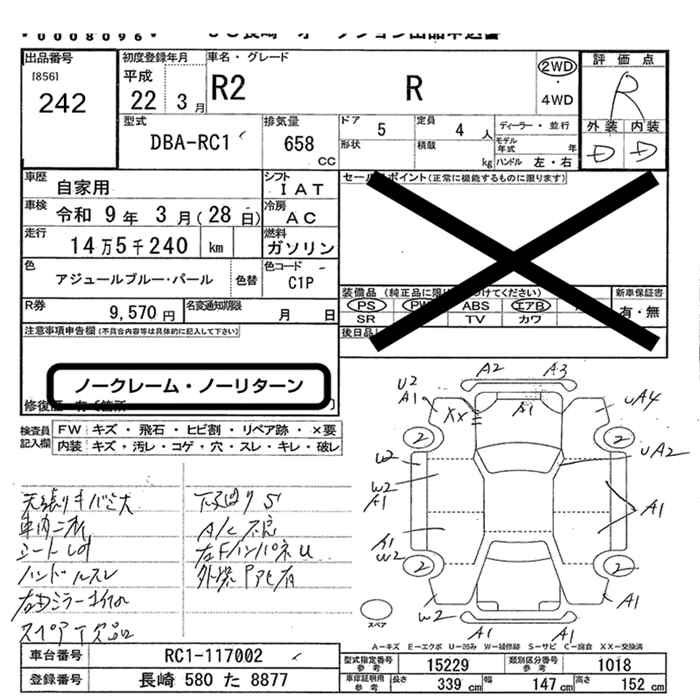 *0008096*
出品番号
[856]
242
初度登録年月
平成
22 3月
車名・グレード
R2 R
2WD
・
4WD
評価点
R
外装 内装
D D
型式
DBA-RC1
排気量
658
CC
ドア
5
形状
定員
4人
積載
kg
ディーラー・並行
モデル年式 年
ハンドル 左・右
車歴
自家用
シフト
IAT
車検
令和 9年 3月(28日)
冷房
AC
走行
14万5千240 km
燃料
ガソリン
色
アジュールブルー・パール
色替
色コード
C1P
R券
9,570円
名変通知期限
月 日
セールスポイント(正常に機能するものに限ります)
装備品
PS PW ABS エアB
SR TV カワ
新車保証書
有・無
後日品
注意事項申告欄(不具合内容等は具体的に記入して下さい)
ノークレーム・ノーリターン
検査員記入欄
FW キズ・飛石・ヒビ割・リペア跡・×要
内装 キズ・汚レ・コゲ・穴・スレ・キレ・破レ
天張りキバミ大
ハンドルスレ
スペアT欠品
下廻りS
A/C不良
A2 A3
U2
A1
XX
A1
UA4
2 2
W2
UA2
W2
A1
A1
A1
W2
2 2
W2
A1
A1 A1
スペア
A=キズ E=エクボ U=凹み W=補修跡 S=サビ C=腐食 XX=交換済
車台番号
RC1-117002
登録番号
長崎 580 た 8877
型式指定番号
参考
15229
類別区分番号
参考
1018
車庫証明用
参考
長さ
339 cm
幅
147 cm
高さ
152 cm